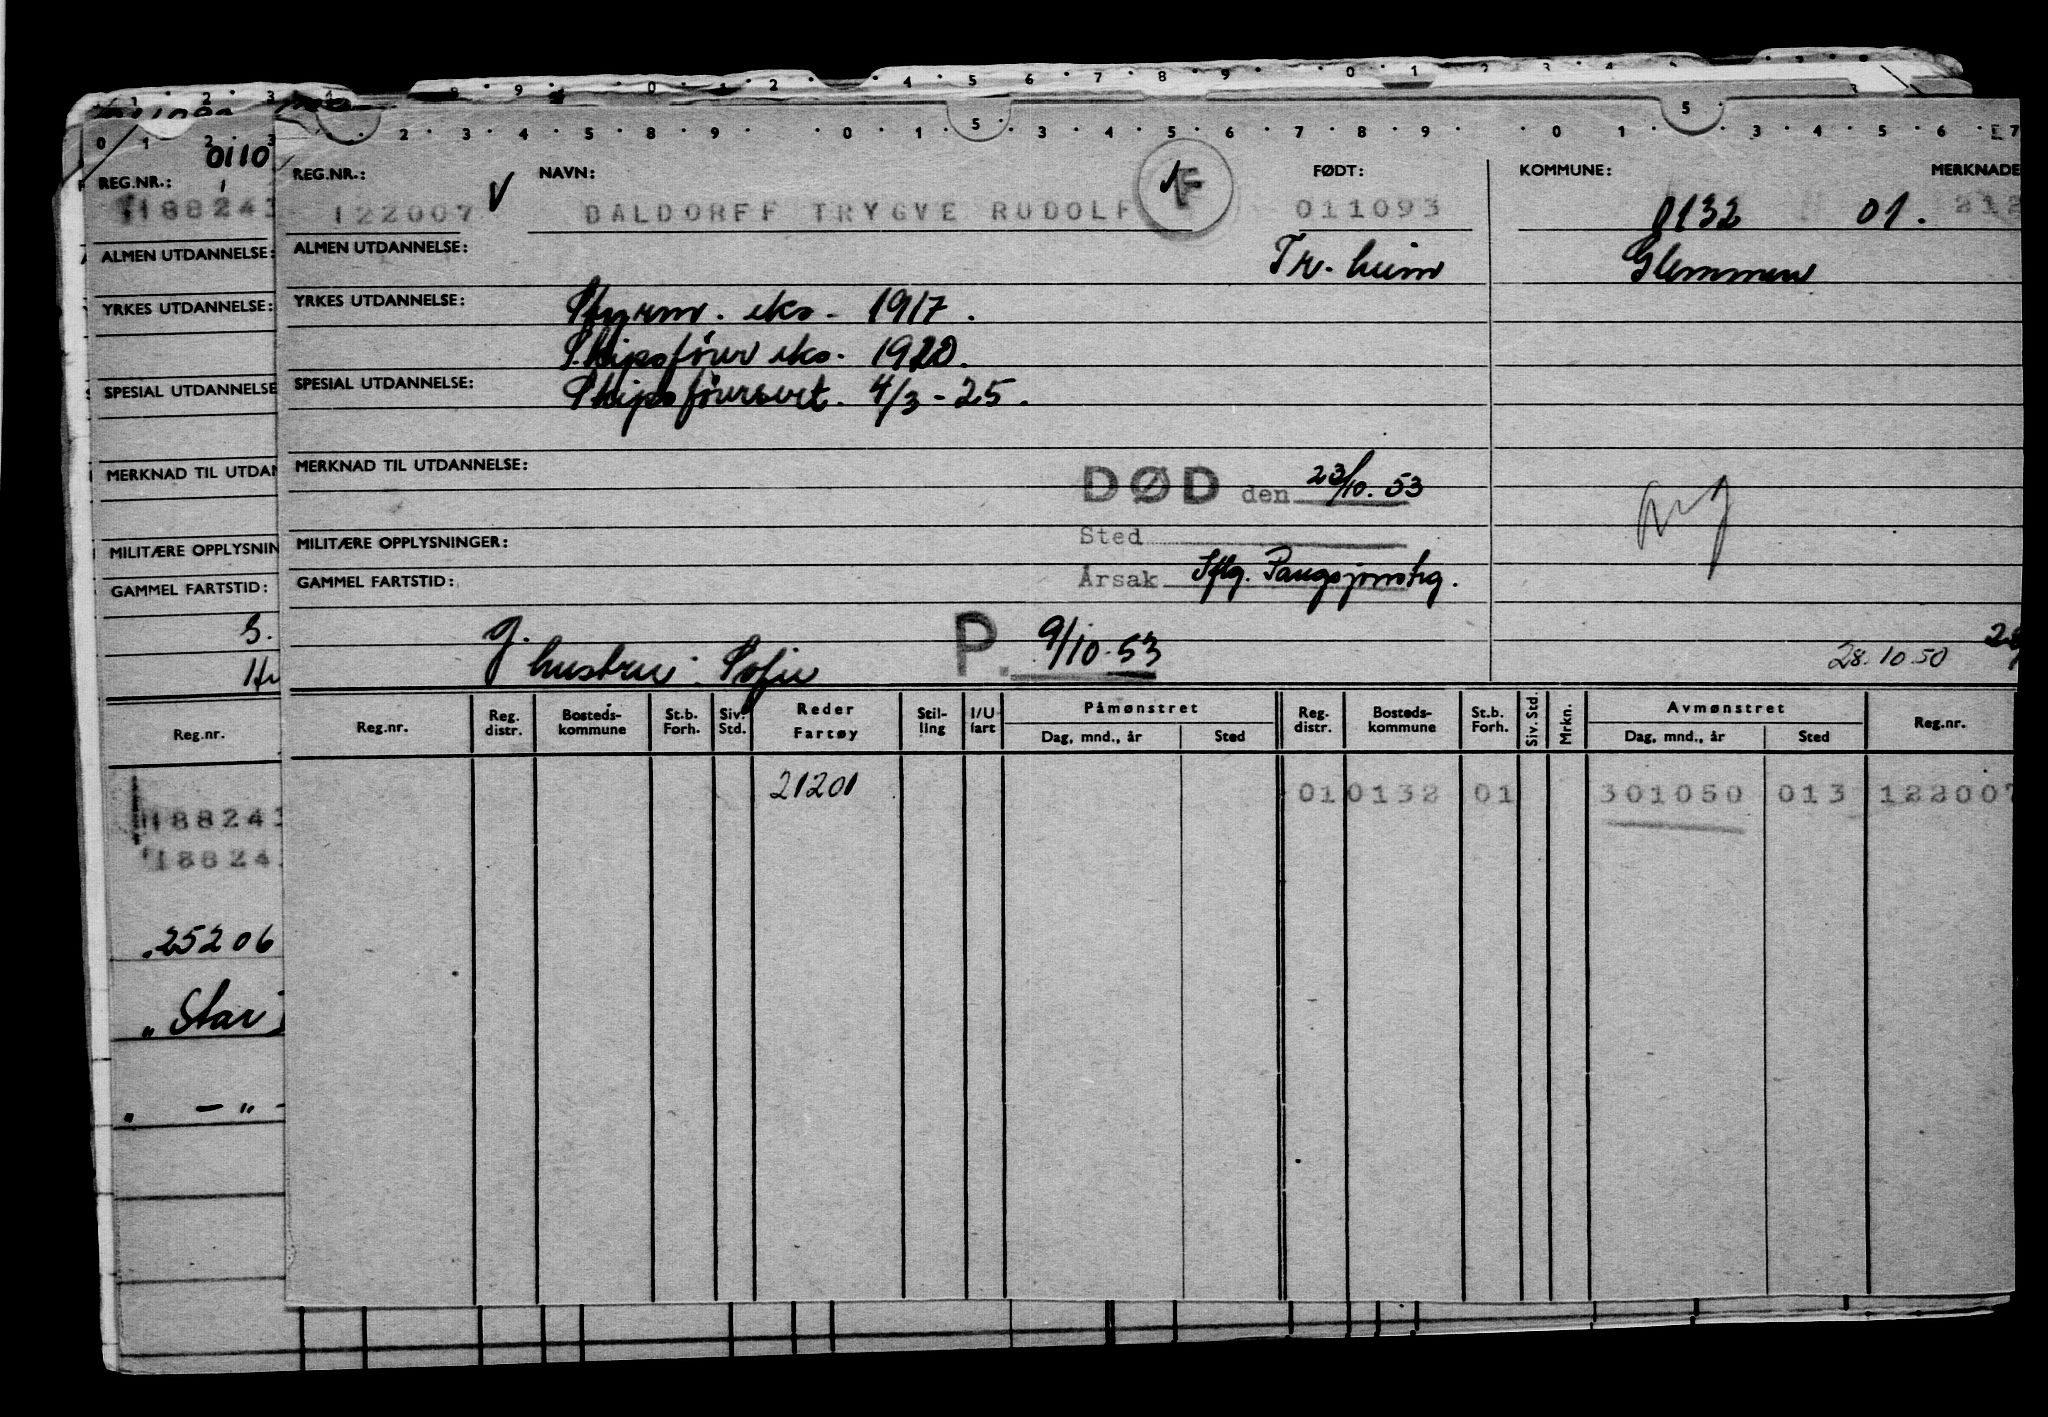 0 1 2 3
0110
REG.NR.:
188243
ALMEN UTDANNELSE:
YRKES UTDANNELSE:
SPESIAL UTDANNELSE
MERKNAD TIL UTDAN
MILITÆRE OPPLYSNIN
GAMMEL FARTSTID:
Reg.nr.
188243
18824
25206
"Star
- " -
2 3 4 5 8 9 0 1 5 3 4 5 6 7 8 9 0 1 5 3 4 5 6 7
REG.NR.: NAVN: FØDT: KOMMUNE: MERKNADE
122007 V DALDORFF TRYGVE RUDOLF F 011093 0132 01. 212
ALMEN UTDANNELSE: Tr.heim Glemmen
YRKES UTDANNELSE: Styrm. eks. 1917.
Skipsfører eks. 1920.
SPESIAL UTDANNELSE: Skipsførersert. 4/3-25.
MERKNAD TIL UTDANNELSE: DØD den 23/10.53
Sted
MILITÆRE OPPLYSNINGER:
Årsak Iflg. Pangsjonstrg.
GAMMEL FARTSTID:
g. P. 9/10.53
hustru: Sofie 28.10.50
Reg.nr. Reg. distr. Bosteds-kommune St.b. Forh. Siv. Std. Reder Fartøy Stil-ling I/U fart Påmønstret Dag, mnd., år Sted Reg. distr. Bosteds-kommune St.b. Forh. Siv. Std. Mrkn. Avmønstret Dag, mnd., år Sted Reg.nr.
21201 01 0132 01 301050 013 122007